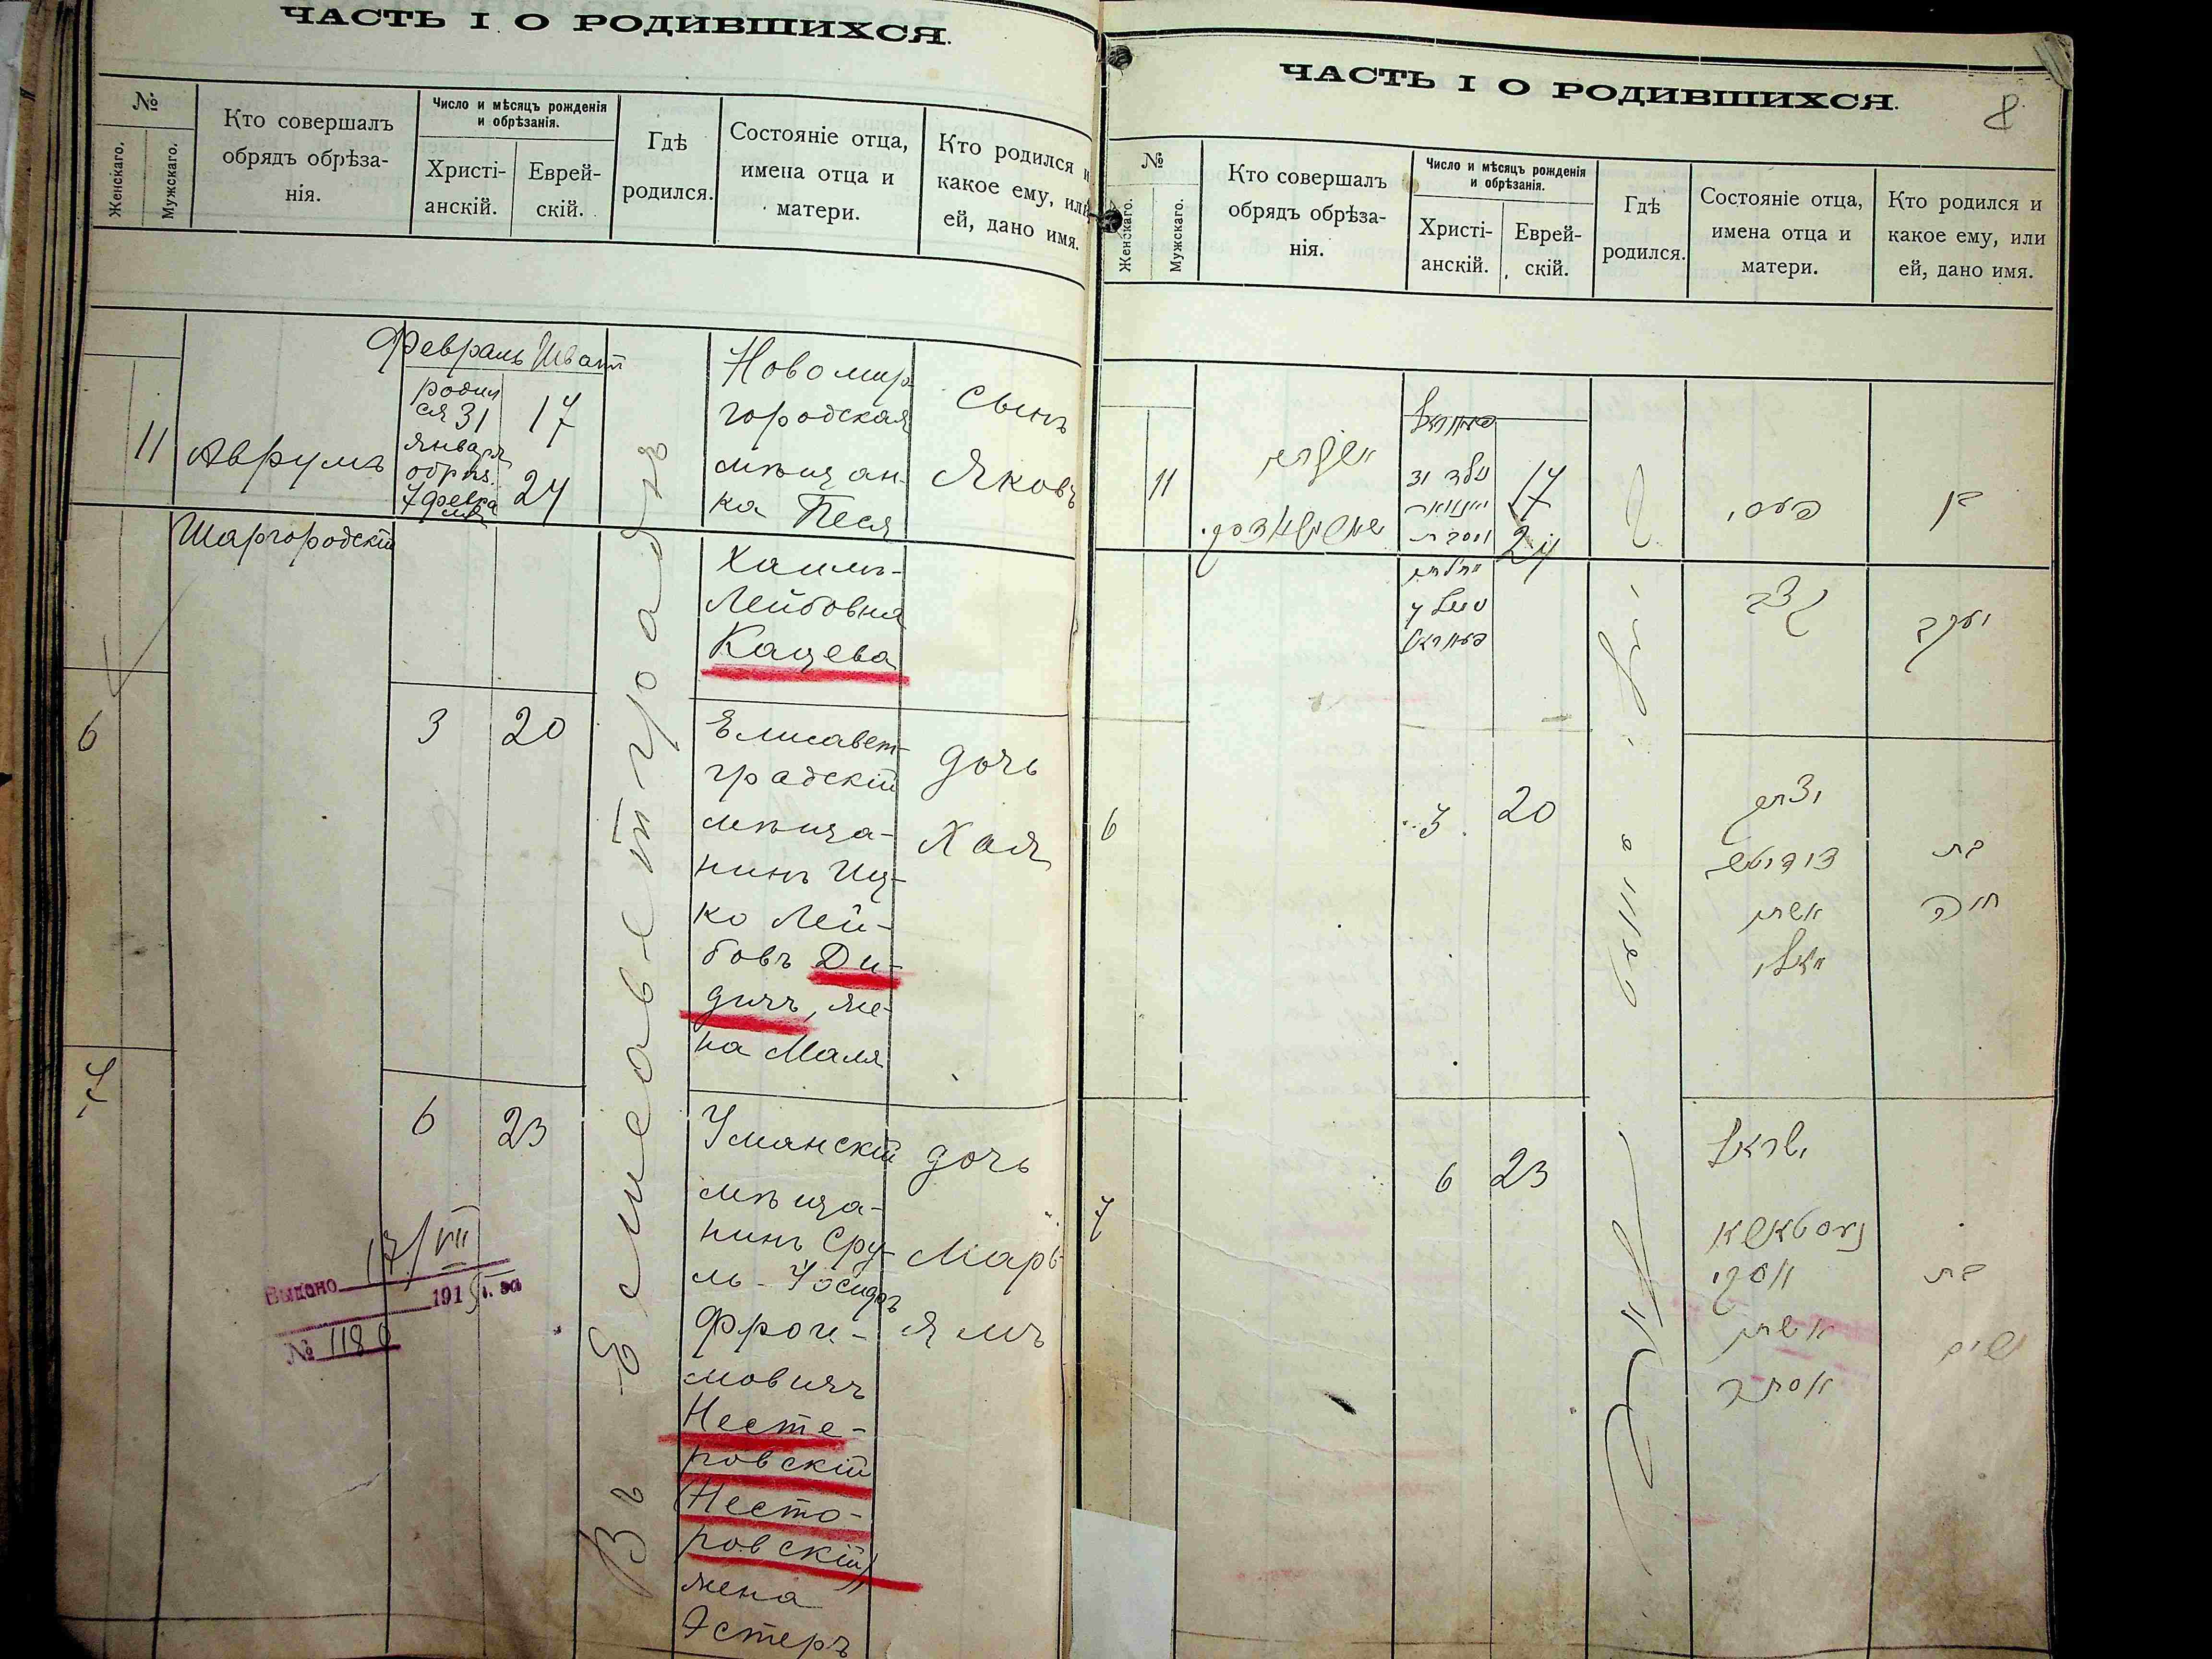 ЧАСТЬ I О РОДИВШИХСЯ.
№
Женскаго.
Мужскаго.
Кто совершалъ
обрядъ обрѣза-
нія.
Число и мѣсяцъ рожденія
и обрѣзанія.
Христі-
анскій.
Еврей-
скій.
Гдѣ
родился.
Состояніе отца,
имена отца и
матери.
Кто родился и
какое ему, или
ей, дано имя.
Февраль Шват
11
Аврумъ
Шаргородскій
родил
ся 31
января
обрѣз.
7 февра
ля
17
24
Въ Елисаветградѣ
Новомир
городская
мѣщан-
ка Песя
Хаимъ-
Лейбовна
Кацева
сынъ
Яковъ
6
3
20
Елисавет-
градскій
мѣща-
нинъ Иц-
ко Лей-
бовъ Ди-
дичъ, же-
на Маля
дочь
Хая
7
6
23
Уманскій
мѣща-
нинъ Сру-
ль-Іосифъ
Фрои-
мовичъ
Несте-
ровскій
(Несто-
ровскій)
жена
Эстеръ
дочь
Марь-
ямъ
Выдано 17/VII
1915 г. за
№ 1180
ЧАСТЬ I О РОДИВШИХСЯ.
8
№
Женскаго.
Мужскаго.
Кто совершалъ
обрядъ обрѣза-
нія.
Число и мѣсяцъ рожденія
и обрѣзанія.
Христі-
анскій.
Еврей-
скій.
Гдѣ
родился.
Состояніе отца,
имена отца и
матери.
Кто родился и
какое ему, или
ей, дано имя.
11
17
24
בן
יעקב
6
3
20
יצחק
אשתו
בת
חיה
7
6
23
ישראל
יוסף
אשתו
אסתר
בת